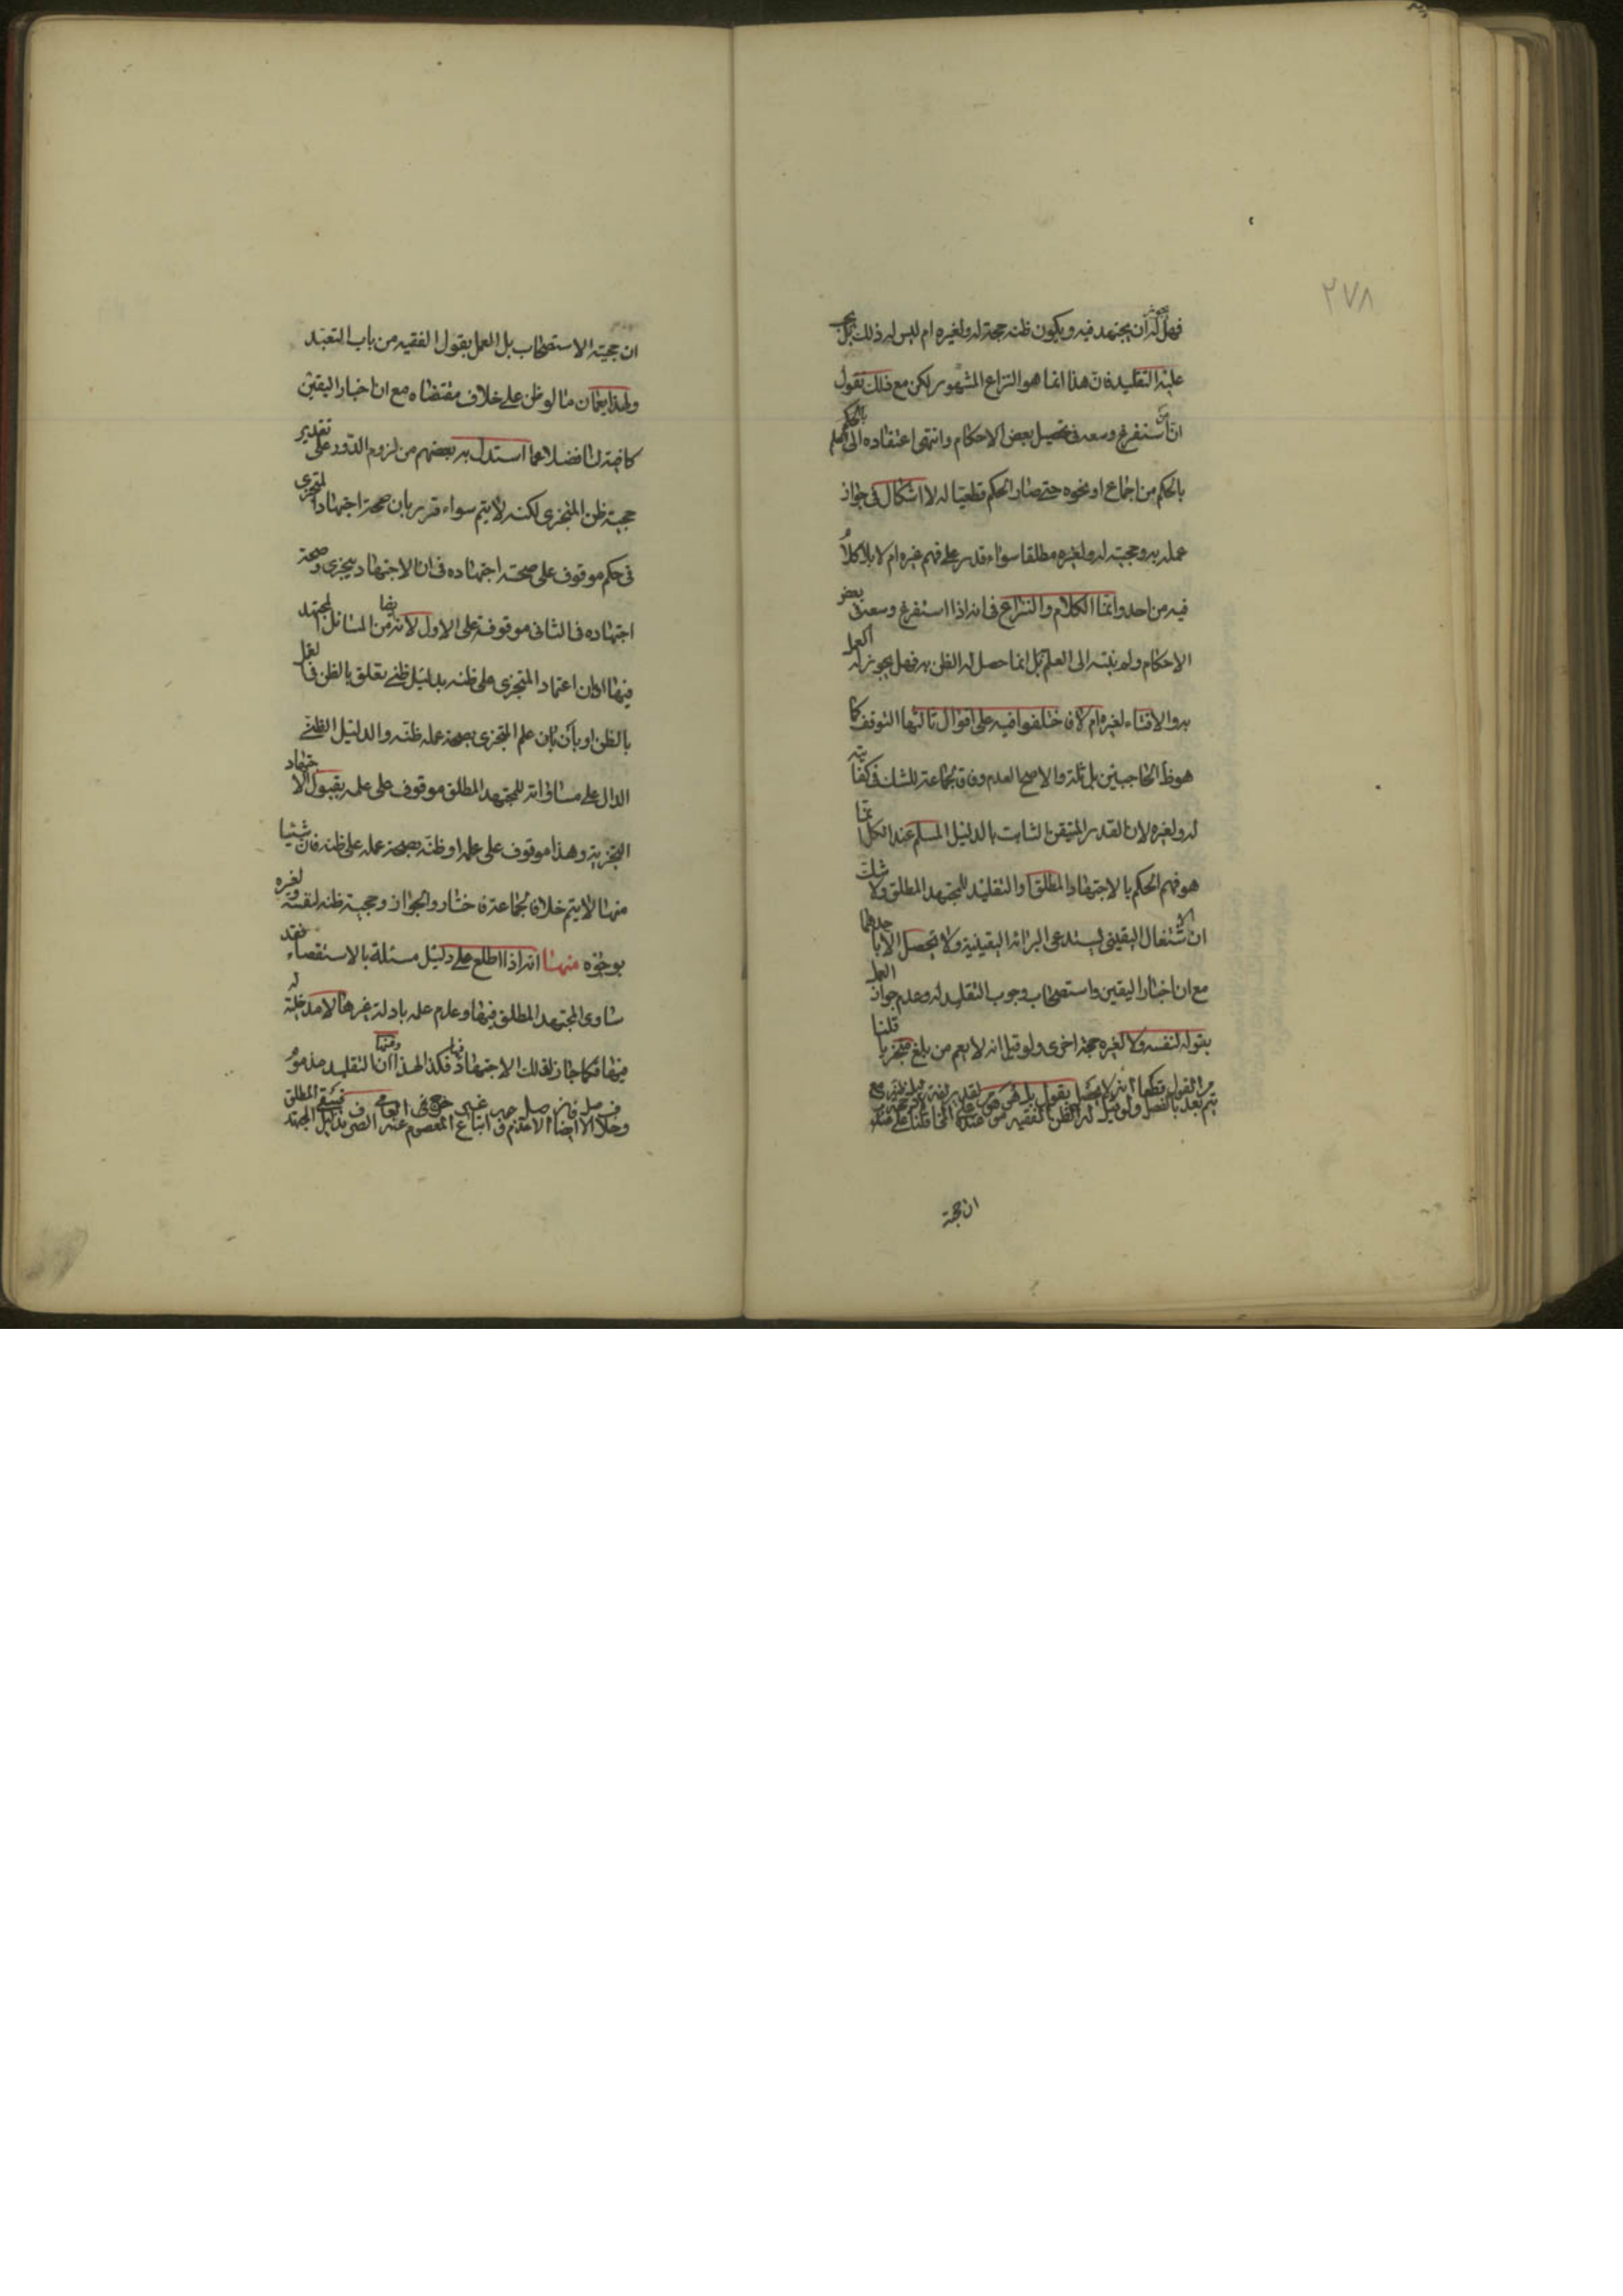 ٢٧٨
فهل له ان يجتهد فيه ويكون ظنه حجة له ولغيره ام ليس له ذلك بل يجب
عليه التقليد فان هذا انما هو النزاع المشهور لكن مع ذلك نقول
ان من استفرغ وسعه في تحصيل بعض الاحكام وانتهى اعتقاده الى العلم بالحكم
بالحكم من اجماع او نحوه حتى صار الحكم قطعيا له لا اشكال في جواز
عمله به وحجيته له ولغيره مطلقا سواء قدر على فهم غيره ام لا بلا كلام
فيه من احد وانما الكلام والنزاع في انه اذا استفرغ وسعه في بعض
الاحكام ولم ينته الى العلم بل انما حصل له الظن به فهل يجوز له العمل
به والافتاء لغيره ام لا فاختلفوا فيه على اقوال ثالثها التوقف كما
هو ظ الحاجبين بل ثلة والاصح العدم وفاق لجماعة للشك في كفايته
له ولغيره لان القدر المتيقن الثابت بالدليل المسلم عند الكل انما
هو فهم الحكم بالاجتهاد المطلق او التقليد للمجتهد المطلق ولا شك
ان الاشتغال اليقيني يستدعى البرائة اليقينية ولا تحصل الا باحدهما
مع ان اخبار اليقين واستصحاب وجوب التقليد له وعدم جواز العمل
بقوله لنفسه ولا لغيره حجة اخرى ولو قيل انه لا يعم من بلغ متجزيا قلنا
يتم بعد بالفصل ولو قيل
ان حجية
ان حجية الاستصحاب بل العمل بقول الفقيه من باب التعبد
ولهذا يعمان ما لو ظن على خلاف مقتضاه مع ان اخبار اليقين
كافية لنا فضلا عما استدل به بعضهم من لزوم الدور على تقدير
حجية ظن المتجزى لكنه لا يتم سواء قرر بان صحة اجتهاد المتجزى
في حكم موقوف على صحة اجتهاده في ان الاجتهاد يتجزى وصحة
اجتهاده في الثاني موقوفة على الاول لانه ايضا من المسائل المجتهد
فيها او ان اعتماد المتجزى على ظنه بدليل ظني تعلق بالظن في العمل
بالظن او بان علم المتجزى بصحة عمله ظنه والدليل الظني
الدال على مساواته للمجتهد المطلق موقوف على علمه بقبول الاجتهاد
التجزية وهذا موقوف على علمه او ظنه بصحة عمله على ظنه فان شيئا
منها لا يتم خلاف لجماعة فاختاروا الجواز وحجية ظنه لنفسه ولغيره
بوجوه منها انه اذا اطلع على دليل مسئلة بالاستقصاء فقد
ساوى المجتهد المطلق فيها وعدم علمه بادلة غيرها لا مدخلية له
فيها فكما جاز لذلك الاجتهاد فيها فكذا لهذا ومنها ان التقليد مذموم